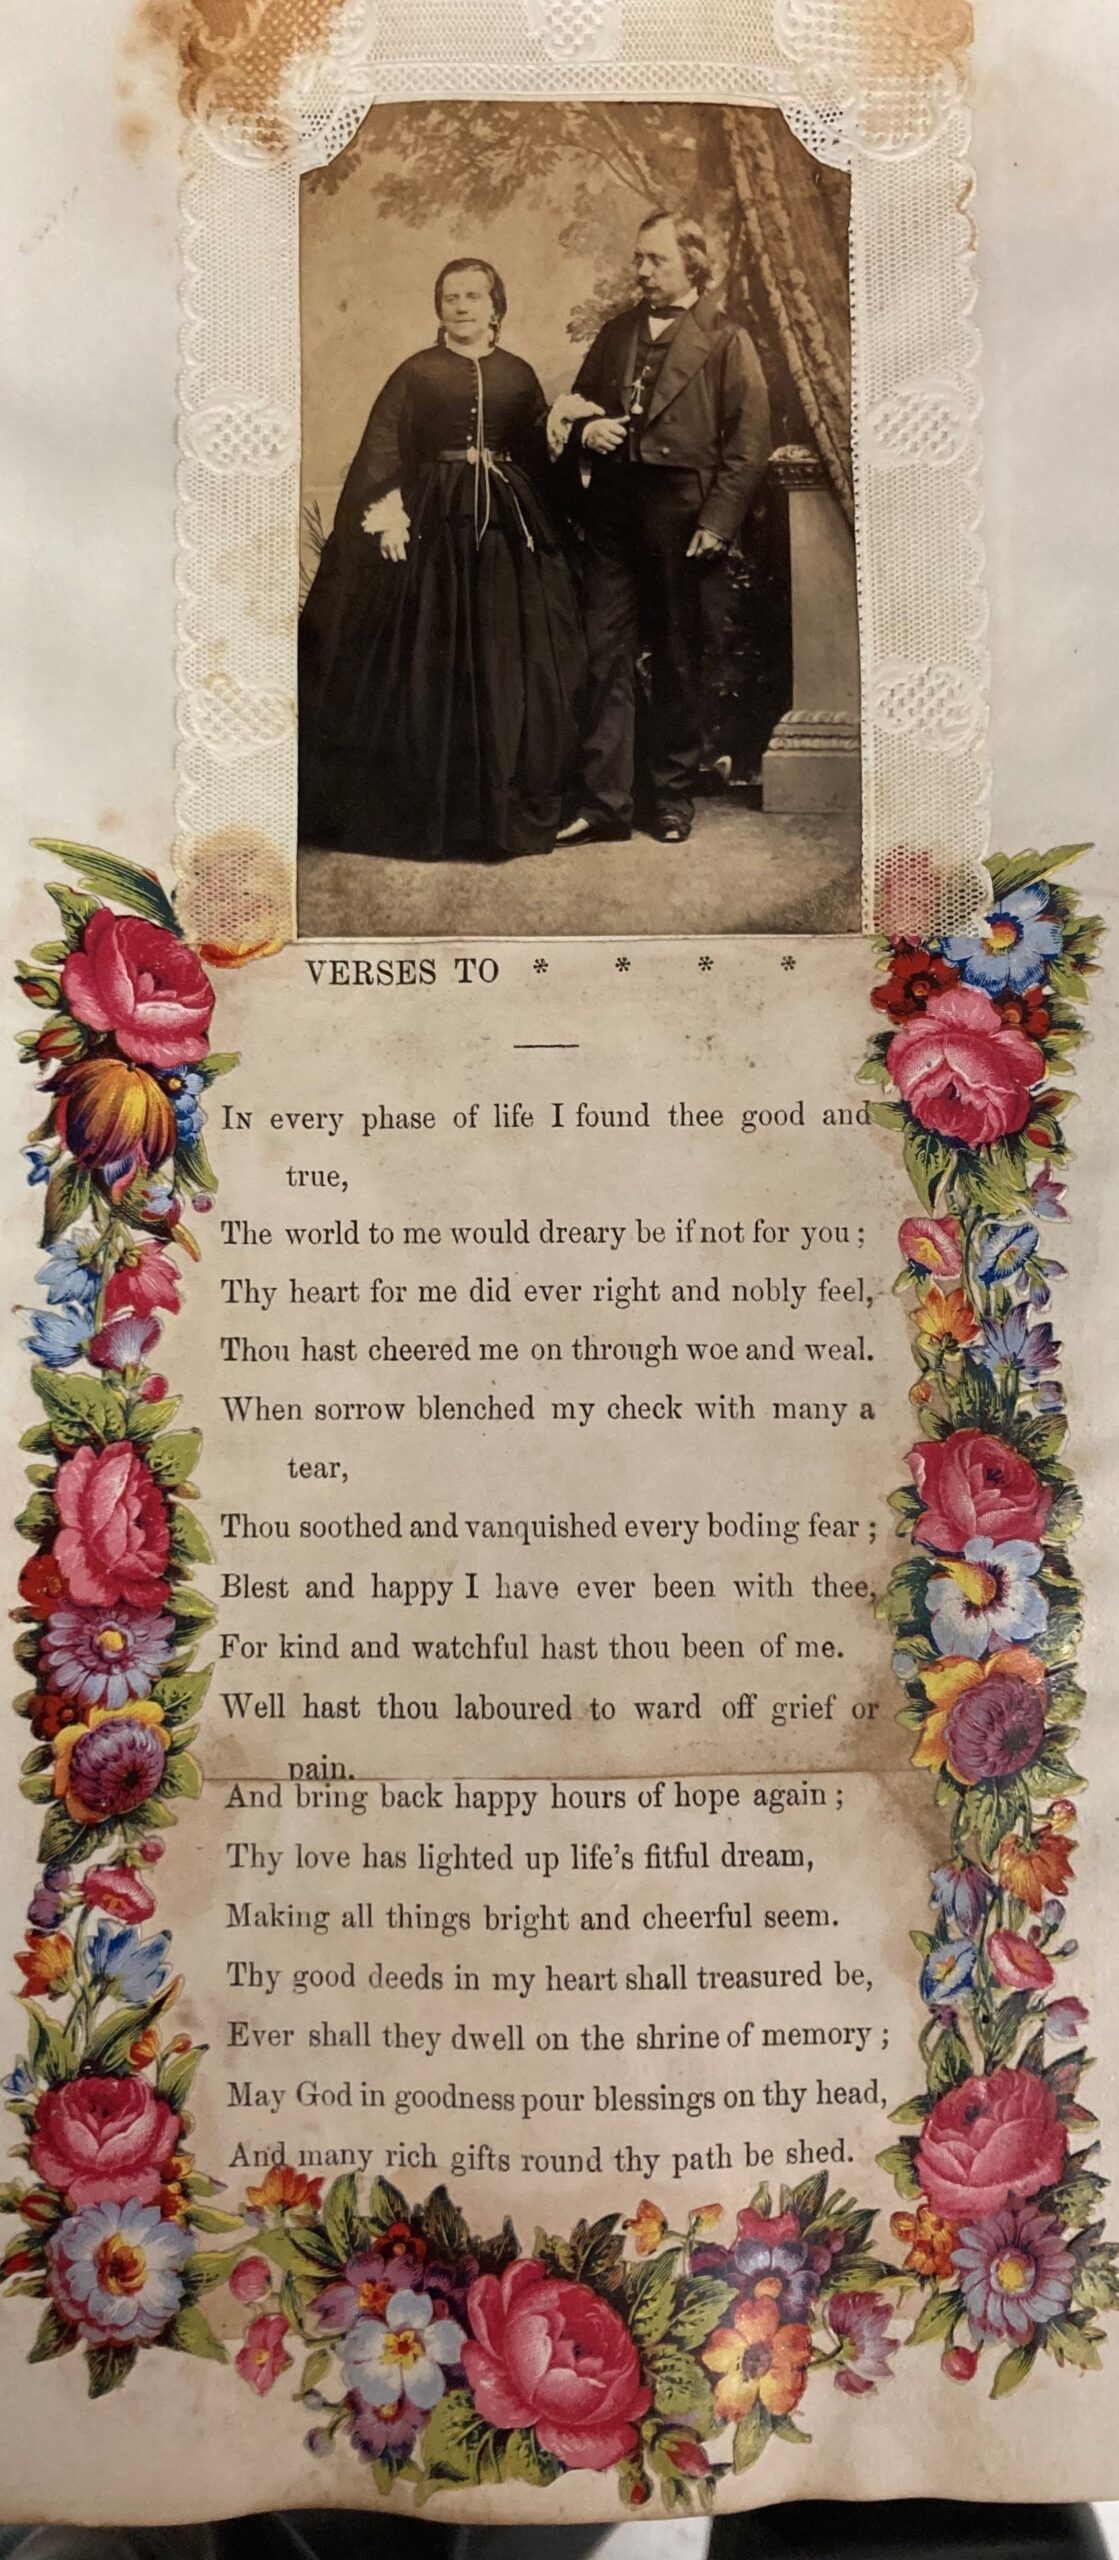 VERSES TO * * * *
In every phase of life I found thee good and
true,
The world to me would dreary be if not for you;
Thy heart for me did ever right and nobly feel,
Thou hast cheered me on through woe and weal.
When sorrow blenched my check with many a
tear,
Thou soothed and vanquished every boding fear;
Blest and happy I have ever been with thee,
For kind and watchful hast thou been of me.
Well hast thou laboured to ward off grief or
pain.
And bring back happy hours of hope again;
Thy love has lighted up life's fitful dream,
Making all things bright and cheerful seem.
Thy good deeds in my heart shall treasured be,
Ever shall they dwell on the shrine of memory;
May God in goodness pour blessings on thy head,
And many rich gifts round thy path be shed.